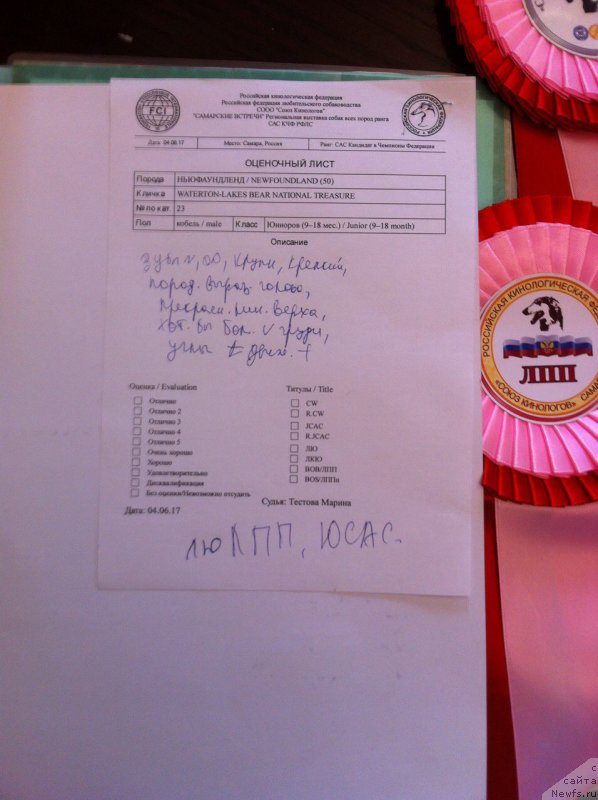 Российская кинологическая федерация
Российская федерация любительского собаководства
СООО "Союз Кинологов"
"САМАРСКИЕ ВСТРЕЧИ" Региональная выставка собак всех пород ранга
САС КЧФ РФЛС
FCI
Дата: 04.06.17 Место: Самара, Россия Ранг: САС Кандидат в Чемпионы Федерации
ОЦЕНОЧНЫЙ ЛИСТ
Порода НЬЮФАУНДЛЕНД / NEWFOUNDLAND (50)
Кличка WATERTON-LAKES BEAR NATIONAL TREASURE
№ по кат. 23
Пол кобель / male Класс Юниоров (9–18 мес.) / Junior (9–18 month)
Описание
крупн, крепкий,
пород. выраж. голова,
верха,
хот. бы бол. V груди,
углы ± движ. +
Оценка / Evaluation Титулы / Title
Отлично
Отлично 2
Отлично 3
Отлично 4
Отлично 5
Очень хорошо
Хорошо
Удовлетворительно
Дисквалификация
Без оценки/Невозможно отсудить
CW
R.CW
JCAC
R.JCAC
ЛЮ
ЛКЮ
BOB/ЛПП
BOS/ЛППп
Судья: Тестова Марина
Дата: 04.06.17
ЛЮ ЛПП, ЮСАС.
РОССИЙСКАЯ КИНОЛОГИЧЕСКАЯ
ЛПП
«СОЮЗ КИНОЛОГОВ»
с
сайта
Newfs.ru